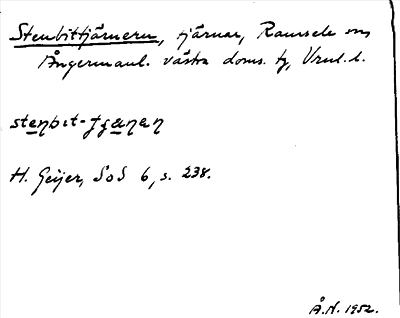 Stenbittjärnern, tjärnar, Ramsele sn,
Ångermanl. västra doms. tg, Vnrl. l.
stenbit-
H. Geijer, SoS 6, s. 238.
Å.N. 1952.